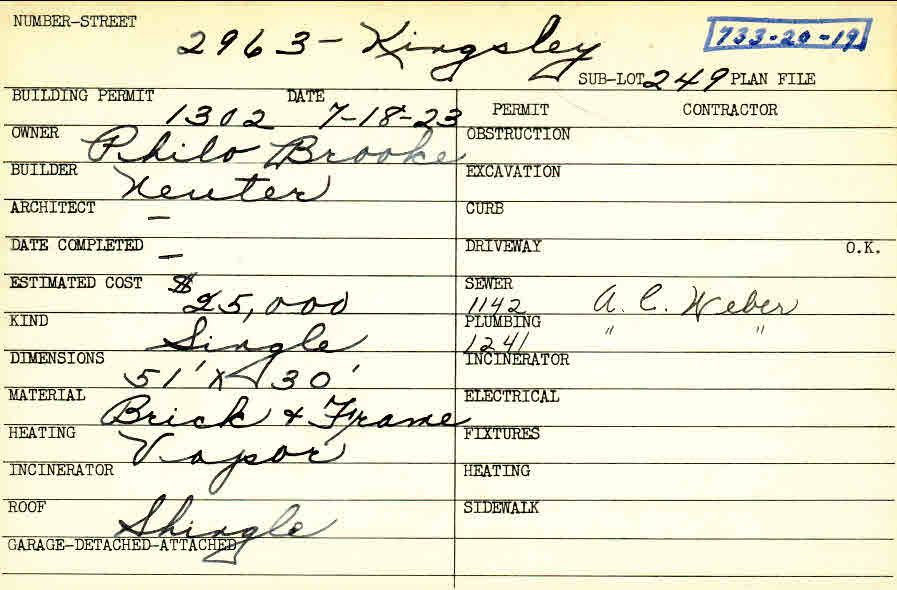 NUMBER-STREET
2963 - Kingsley
733-20-19
SUB-LOT 249 PLAN FILE
BUILDING PERMIT 1302 DATE 7-18-23
PERMIT CONTRACTOR
OWNER Philo Brooke
OBSTRUCTION
BUILDER Neuter
EXCAVATION
ARCHITECT -
CURB
DATE COMPLETED -
DRIVEWAY O.K.
ESTIMATED COST $25,000
SEWER 1142 A. C. Weber
KIND Single
PLUMBING 1241 " "
DIMENSIONS 51' X 30'
INCINERATOR
MATERIAL Brick & Frame
ELECTRICAL
HEATING Vapor
FIXTURES
INCINERATOR
HEATING
ROOF Shingle
SIDEWALK
GARAGE-DETACHED-ATTACHED